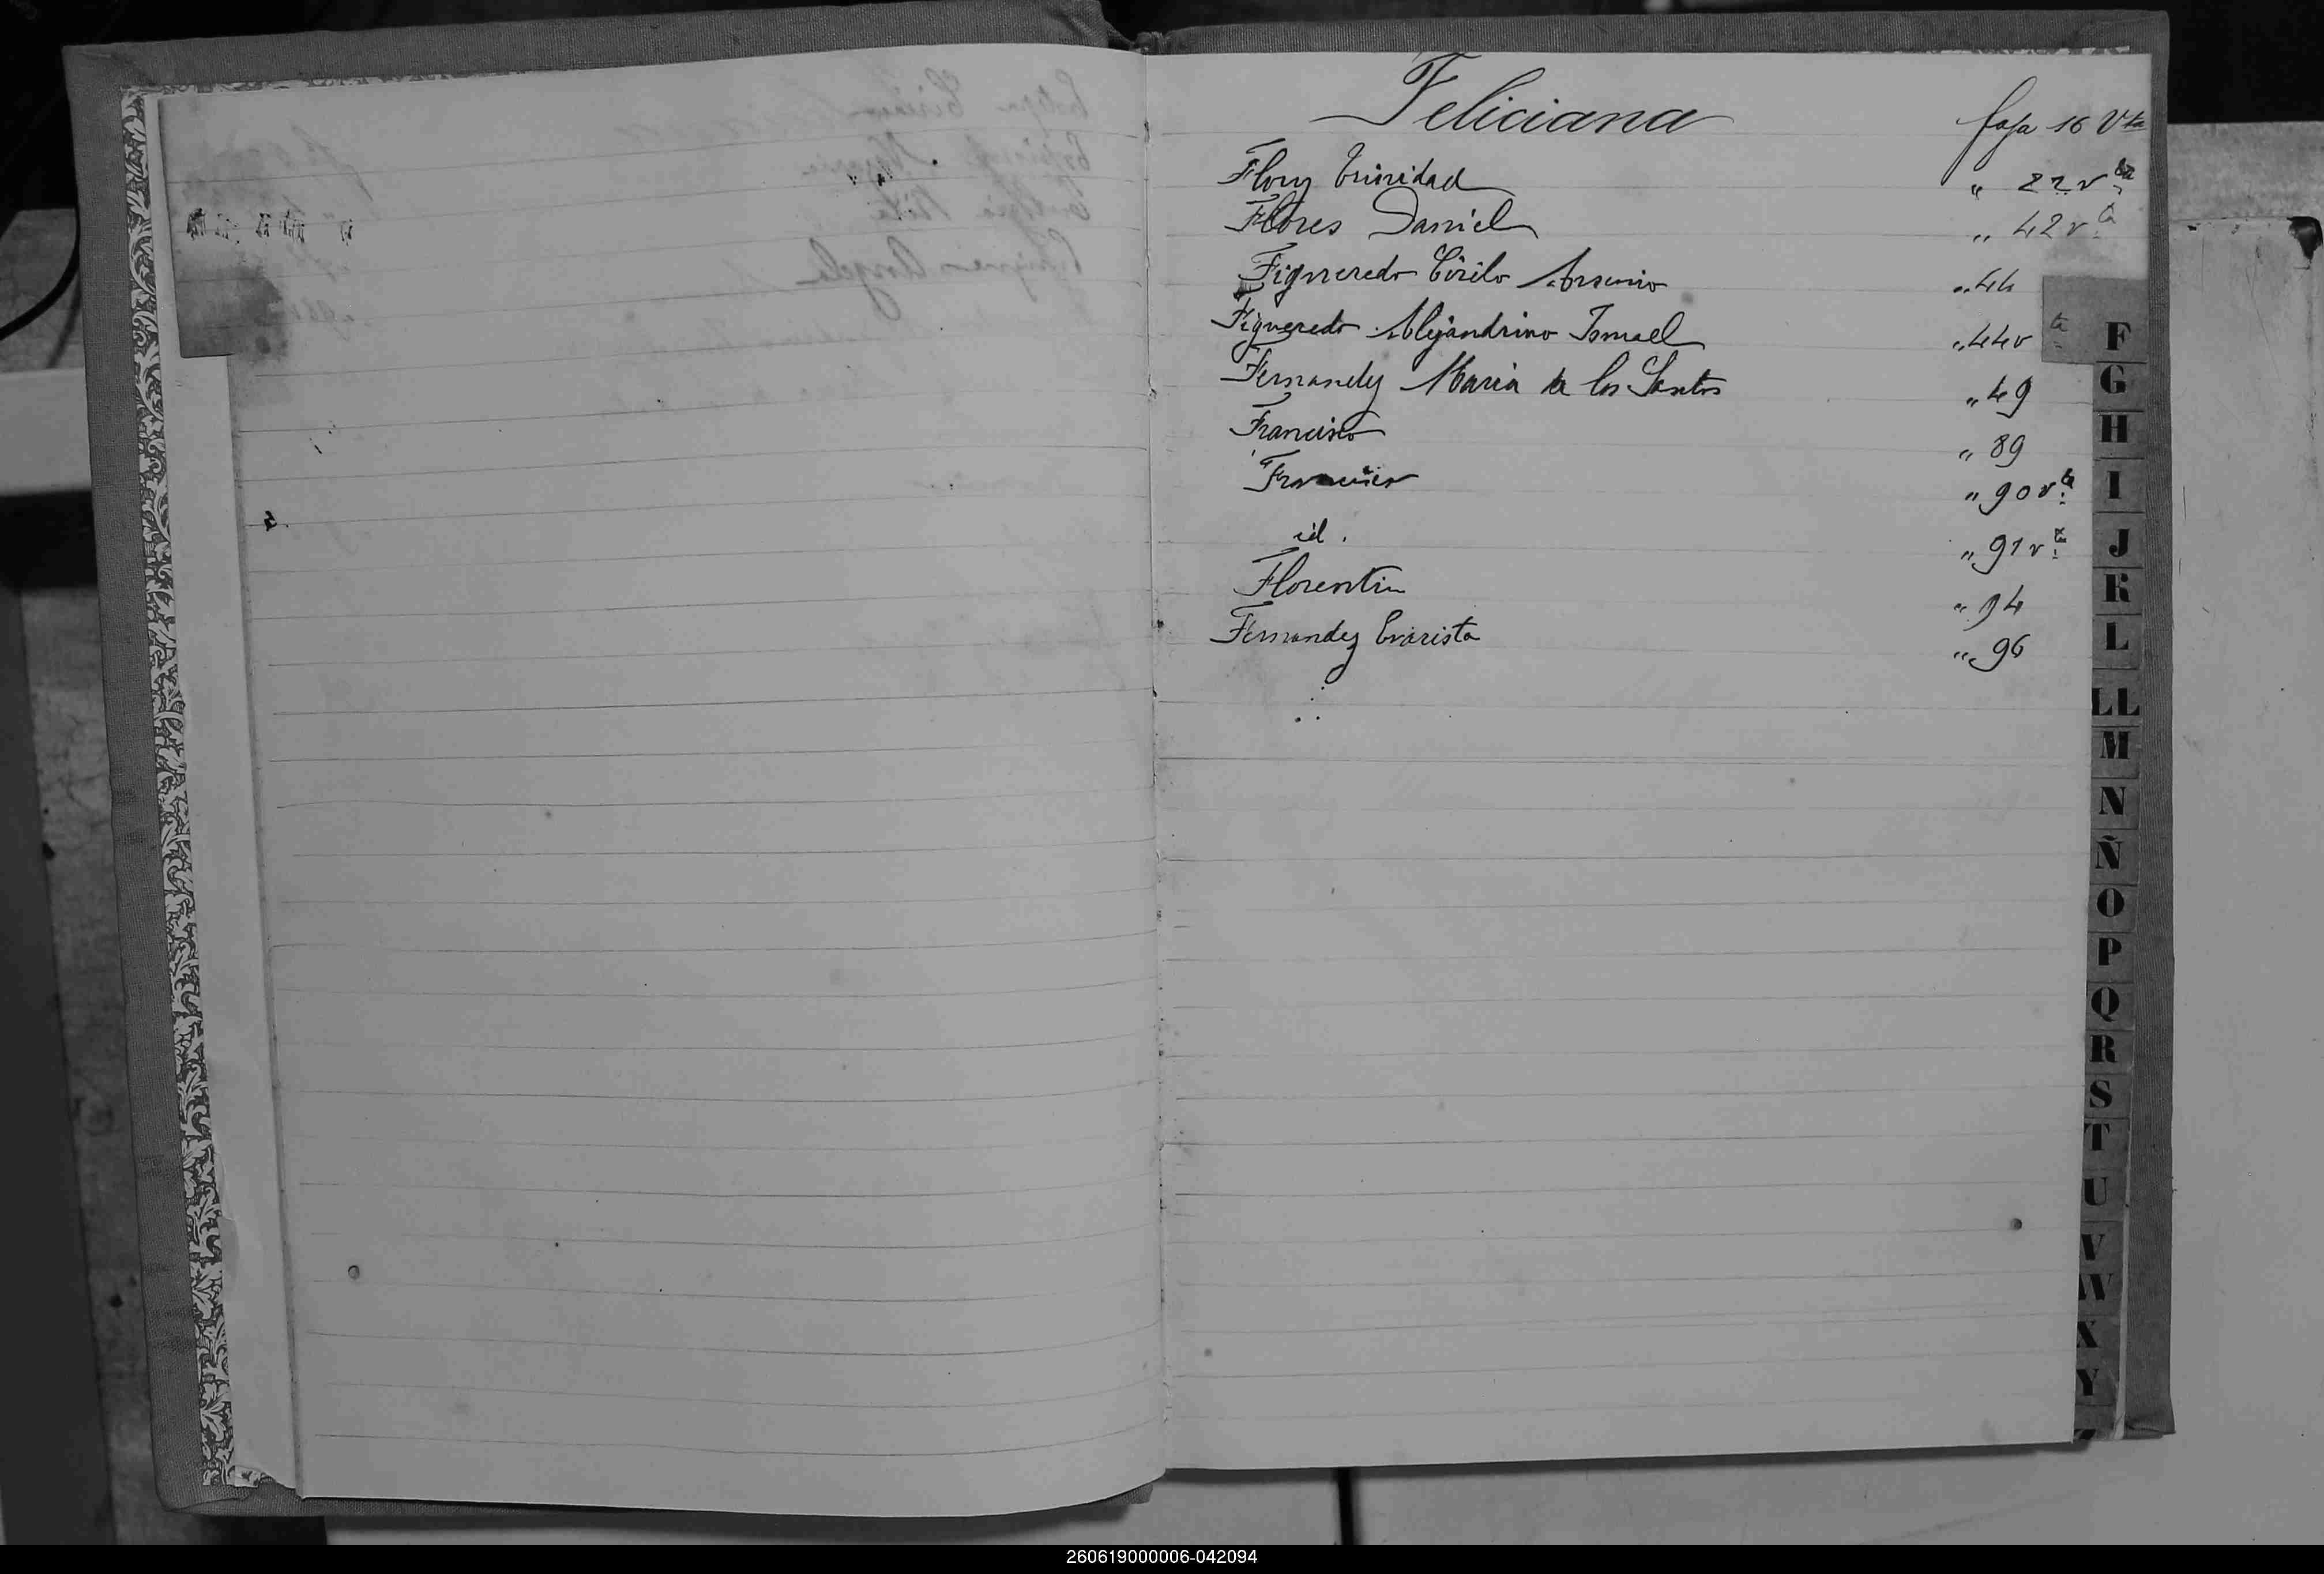 Feliciana foja 16 Vta
Flory Trinidad " 22 vta
Flores Daniel " 42 vta
Figueredo Cirilo Arsenio " 44
Figueredo Alejandrino Ismael " 44 v ta
Fernandez Maria de los Santos " 49
Francisco " 89
Francisco " 90 vta
id. " 91 vta
Florentin " 94
Fernandez Evarista " 96
F
G
H
I
J
K
L
LL
M
N
Ñ
O
P
Q
R
S
T
U
V
W
X
Y
260619000006-042094